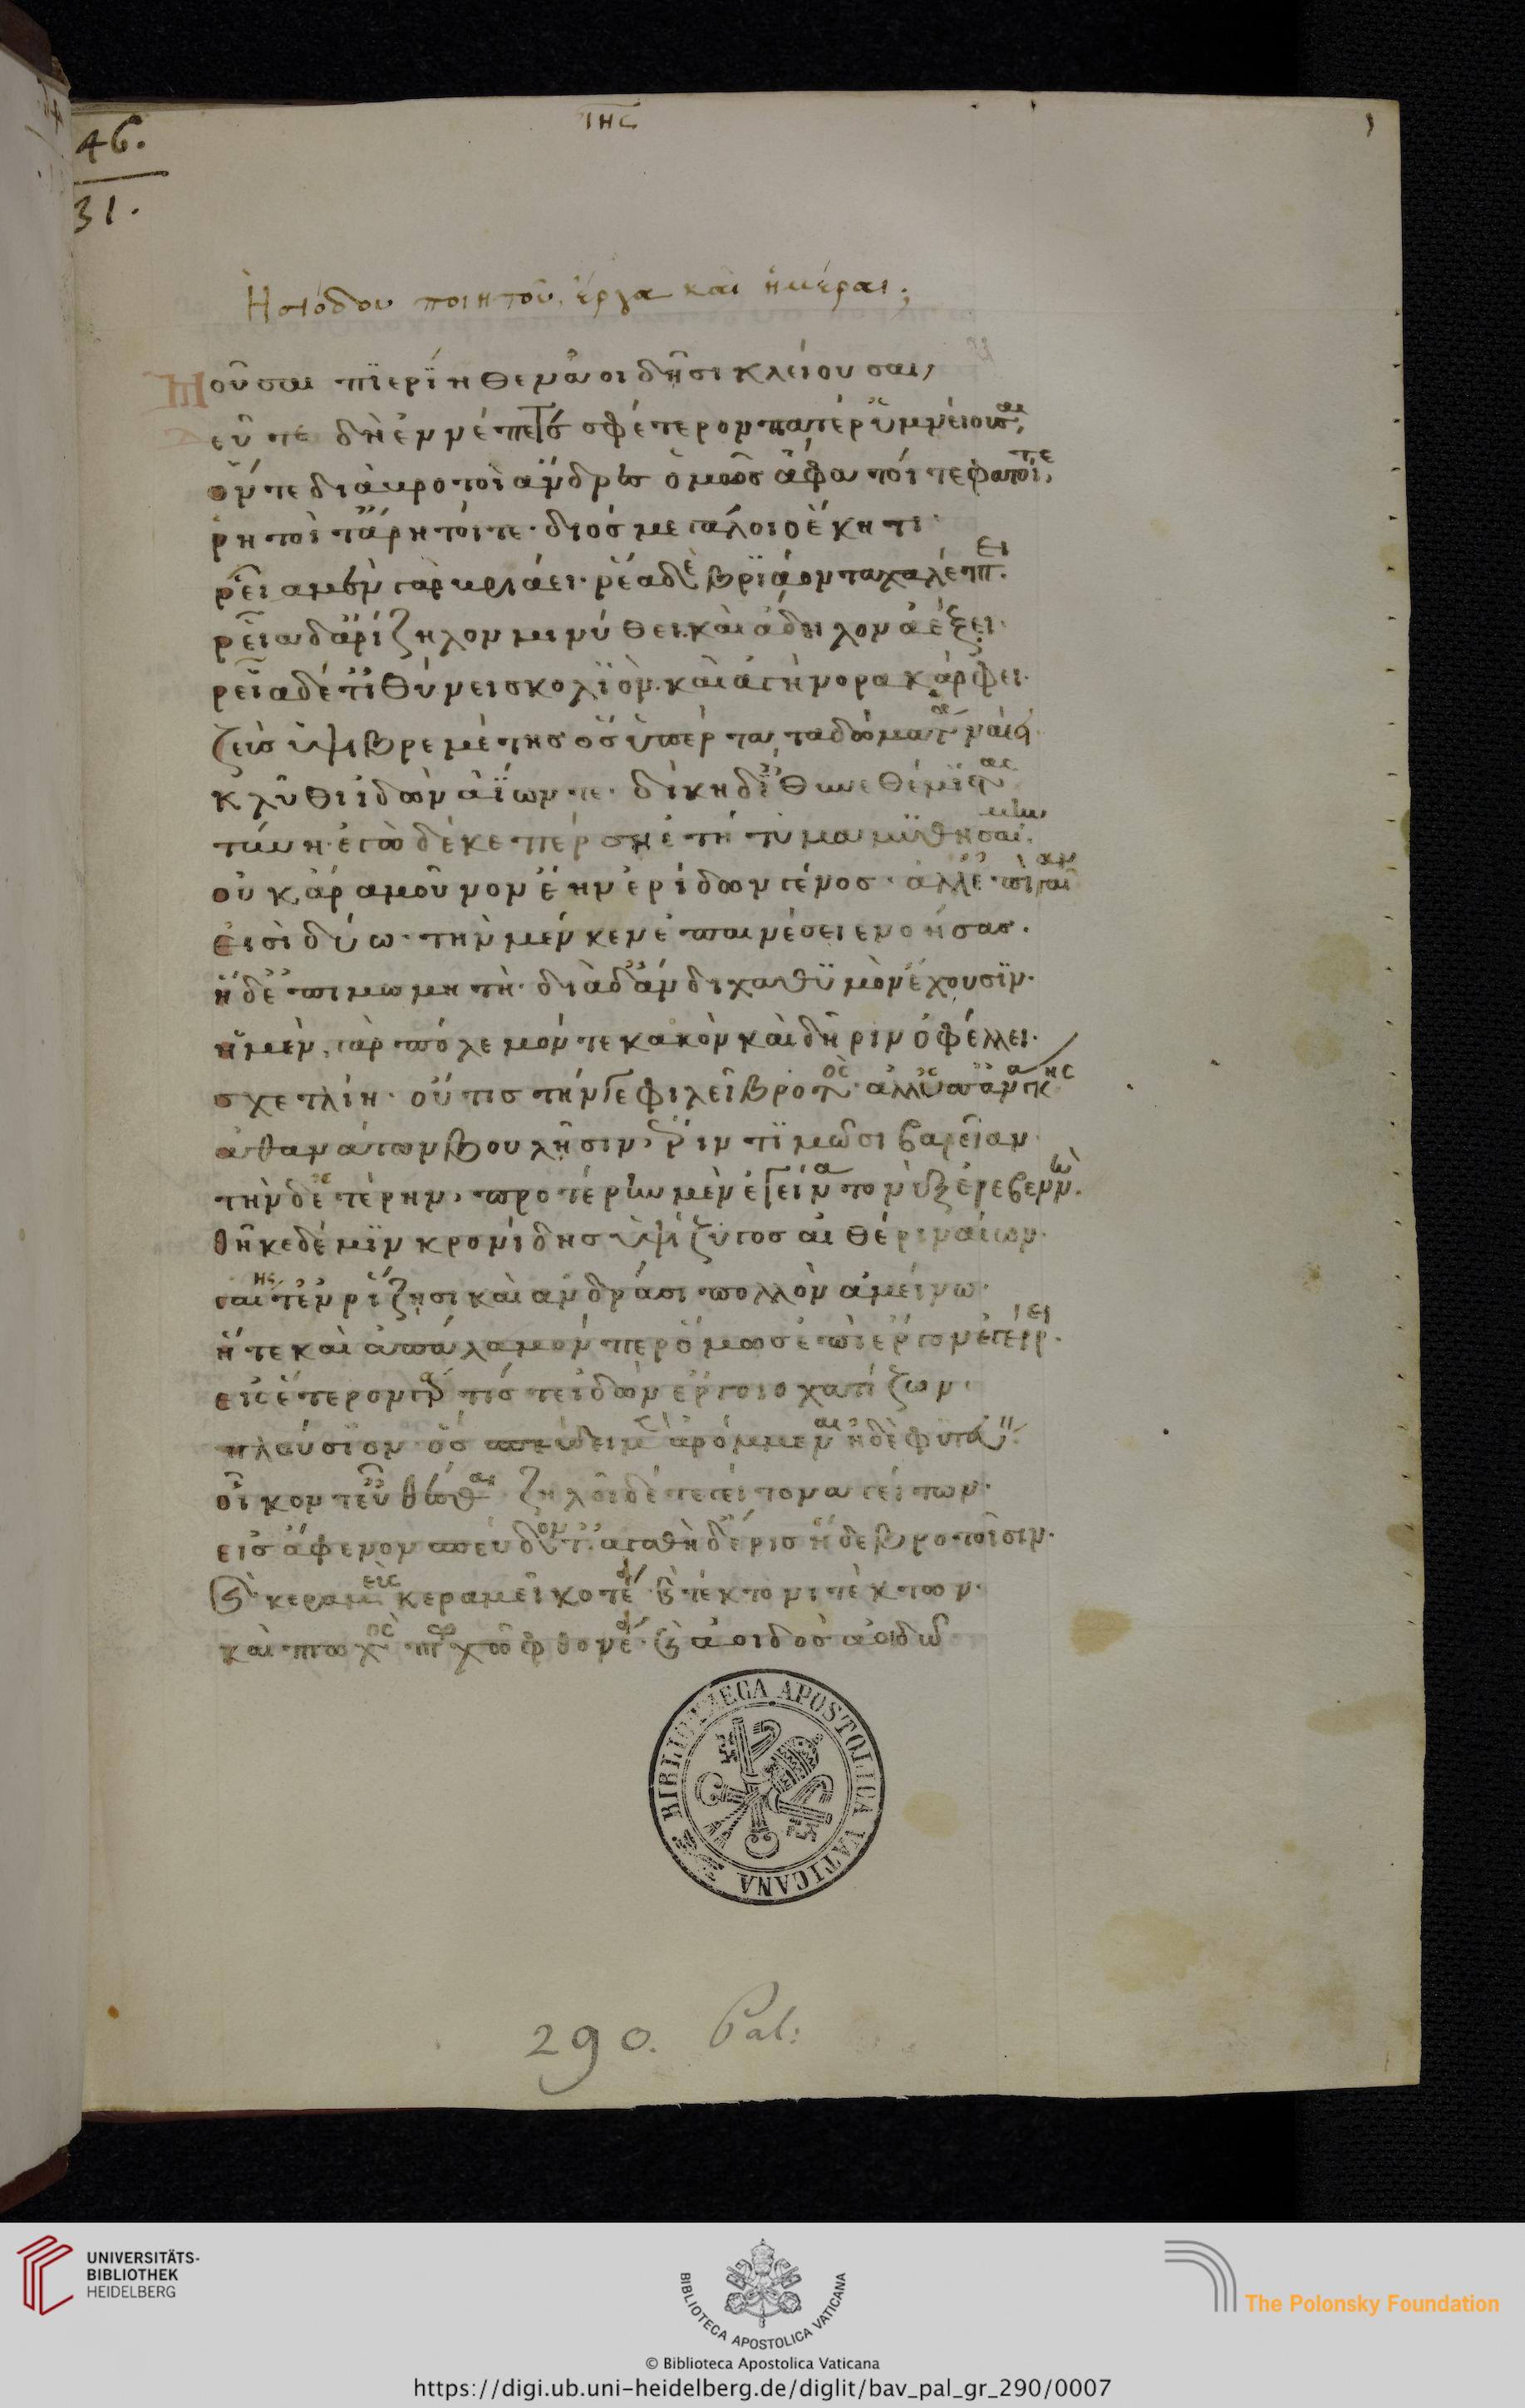 46.
31.
ΙΗΣ
1
Ἡσιόδου ποιητοῦ, ἔργα καὶ ἡμέραι;
Μοῦσαι πϊερΐηθεν ἀοιδῆσι κλείουσαι,
εὖτε δὴ ἐννέπετε σφέτερον πατέρ' ὑμνείουσαι,
ὅν τε διὰ βροτοὶ ἄνδρες ὁμῶς ἄφατοί τε φατοί τε,
ῥητοί τ' ἄρητοί τε· διὸς μεγάλοιο ἕκητι·
ῥεῖα μὲν γὰρ βριάει· ῥέα δὲ βρϊάοντα χαλέπτει.
ῥεῖα δ' ἀρίζηλον μινύθει· καὶ ἄδηλον ἀέξει·
ῥεῖα δέ τ' ἰθύνει σκολϊὸν· καὶ ἀγήνορα κάρφει·
ζεὺς ὑψιβρεμέτης ὃς ὑπέρτατα δώματα ναίει·
κλῦθι ἰδὼν ἀΐων τε· δίκη δ' ἴθυνε θέμιστας
τύνη· ἐγὼ δέ κε πέρση ἐτήτυμα μυθησαίμην
οὐκ ἄρα μοῦνον ἔην ἐρίδων γένος· ἀλλ' ἐπὶ γαῖαν
εἰσὶ δύω· τὴν μέν κεν ἐπαινέσειε νοήσας.
ἡ δ' ἐπιμωμητὴ· διὰ δ' ἄνδιχα θϋμὸν ἔχουσϊν·
ἡ μὲν γὰρ πόλεμόν τε κακὸν καὶ δῆριν ὀφέλλει·
σχετλίη· οὔτις τήν γε φιλεῖ βροτὸς· ἀλλ' ὑπ' ἀνάγκης
ἀθανάτων βουλῆσιν, ἔριν τϊμῶσι βαρεῖαν·
τὴν δ' ἑτέρην, προτέρην μὲν ἐγείνατο νὺξ ἐρεβεννὴ.
θῆκε δέ μϊν κρονίδης ὑψίζυγος αἰθέρι ναίων·
γαίης τ' ἐν ῥίζησι καὶ ἀνδράσι πολλὸν ἀμείνω·
ἥτε καὶ ἀπάλαμόν περ ὅμως ἐπὶ ἔργον ἐγείρει.
εἰς ἕτερον γάρ τίς τε ἰδὼν ἔργοιο χατίζων·
πλούσϊον· ὃς σπεύδει μὲν ἀρόμμεναι ἠδὲ φυτεύειν·
οἶκόν τ' εὖ θέσθαι· ζηλοῖ δέ τε γείτονα γείτων·
εἰς ἄφενον σπεύδοντ'· ἀγαθὴ δ' ἔρις ἥδε βροτοῖσιν·
καὶ κεραμεὺς κεραμεῖ κοτέει· καὶ τέκτονι τέκτων·
καὶ πτωχὸς πτωχῶ φθονέει· καὶ ἀοιδὸς ἀοιδῶ
BIBLIOTHECA APOSTOLICA VATICANA
290. Pal:
UNIVERSITÄTS-
BIBLIOTHEK
HEIDELBERG
BIBLIOTECA APOSTOLICA VATICANA
The Polonsky Foundation
© Biblioteca Apostolica Vaticana
https://digi.ub.uni-heidelberg.de/diglit/bav_pal_gr_290/0007